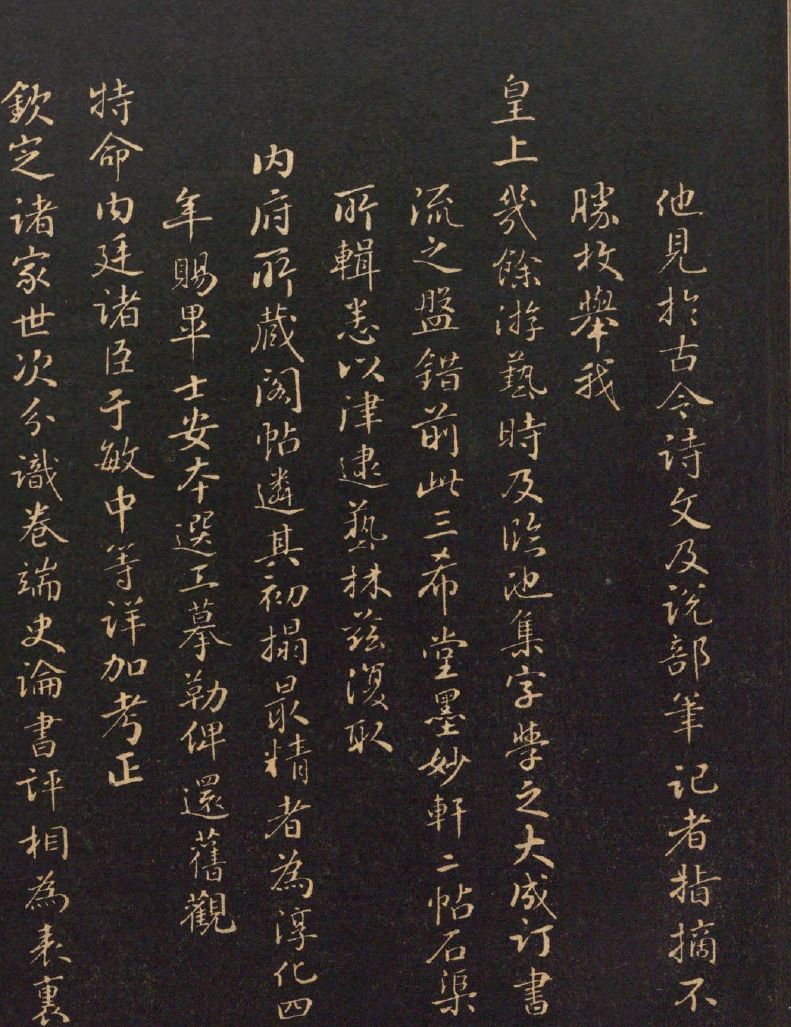 他見於古今詩文及說部筆記者指摘不
勝枚舉我
皇上幾餘游藝時及臨池集字學之大成訂書
流之盤錯前此三希堂墨妙軒二帖石渠
所輯悉以津逮藝林茲復取
內府所藏閣帖遴其初搨最精者為淳化四
年賜畢士安本選工摹勒俾還舊觀
特命內廷諸臣于敏中等詳加考正
欽定諸家世次分識卷端史論書評相為表裏